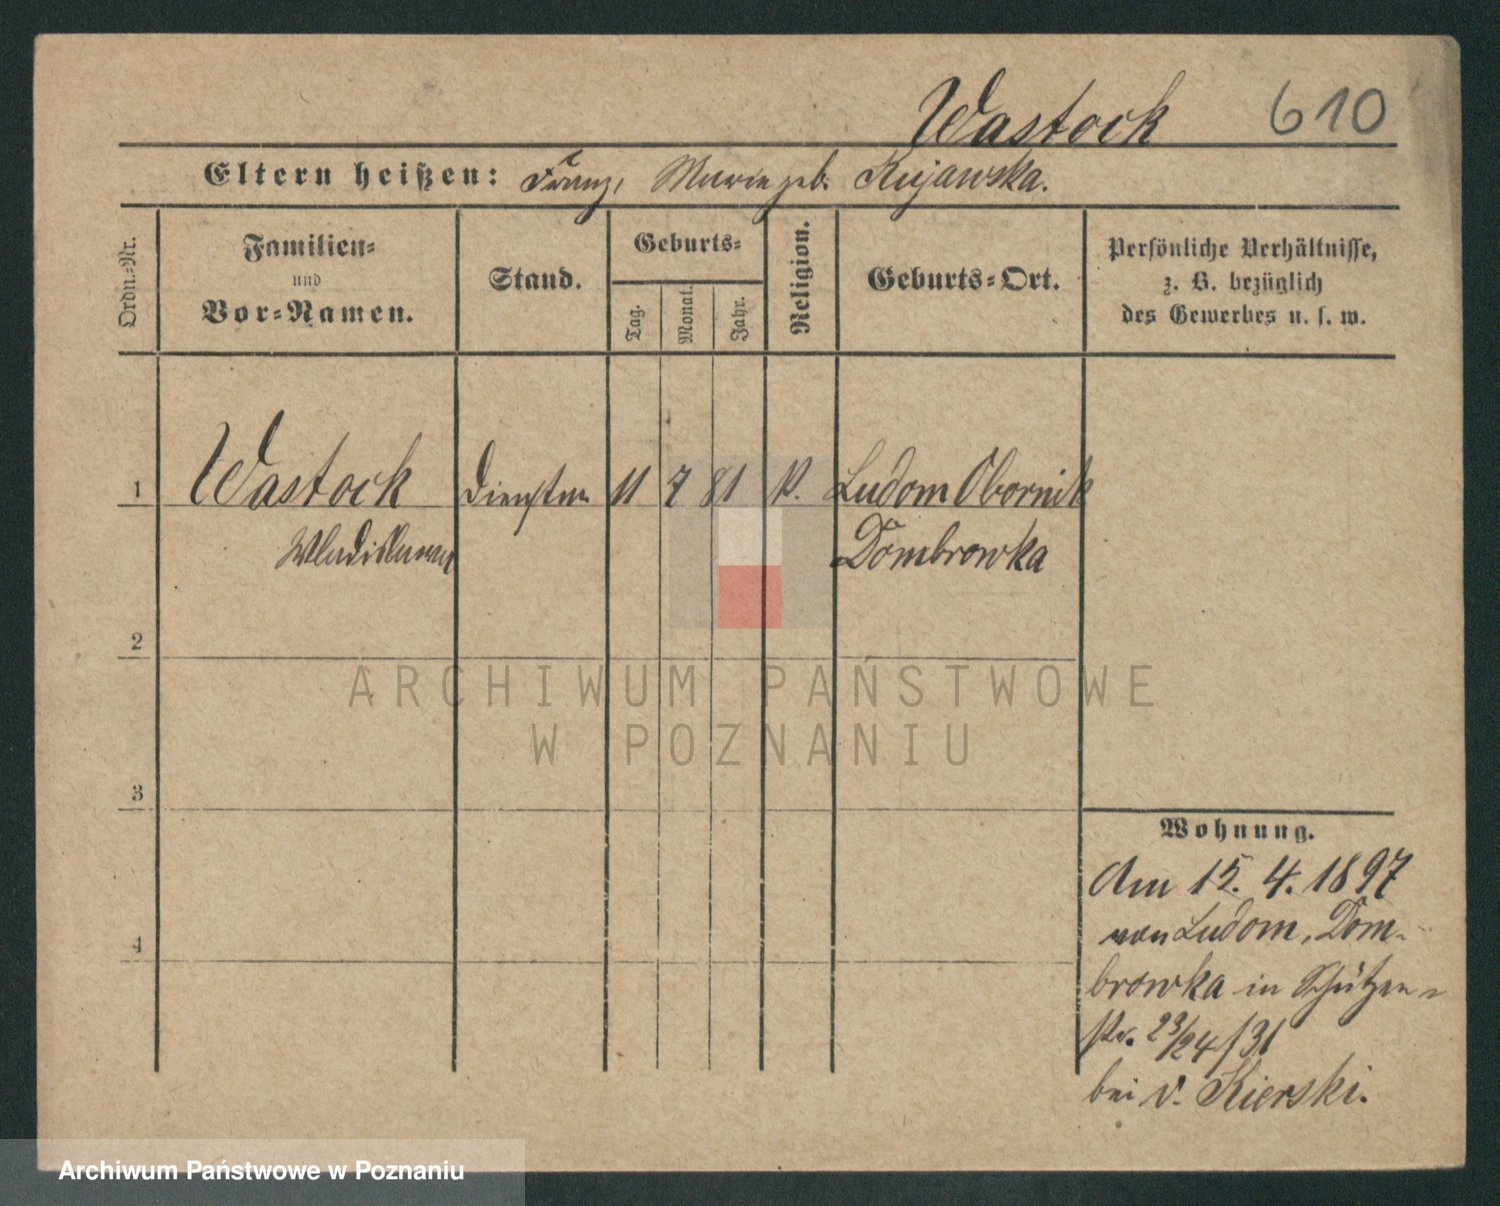 Wastock 610
Eltern heißen: Franz, Marie geb. Kujawska.
Ordn.-Nr.
Familien-
und
Vor-Namen.
Stand.
Geburts-
Tag.
Monat.
Jahr.
Religion.
Geburts-Ort.
Persönliche Verhältnisse,
z. B. bezüglich
des Gewerbes u. s. w.
1 Wastock 11 7 81 K. Ludom Obornik
Wladislawa Dombrowka
2
3
4
Wohnung.
Am 15. 4. 1897
von Ludom, Dom-
browka in Schützen-
str. 23/24/31
bei v. Kierski.
ARCHIWUM PAŃSTWOWE
W POZNANIU
Archiwum Państwowe w Poznaniu